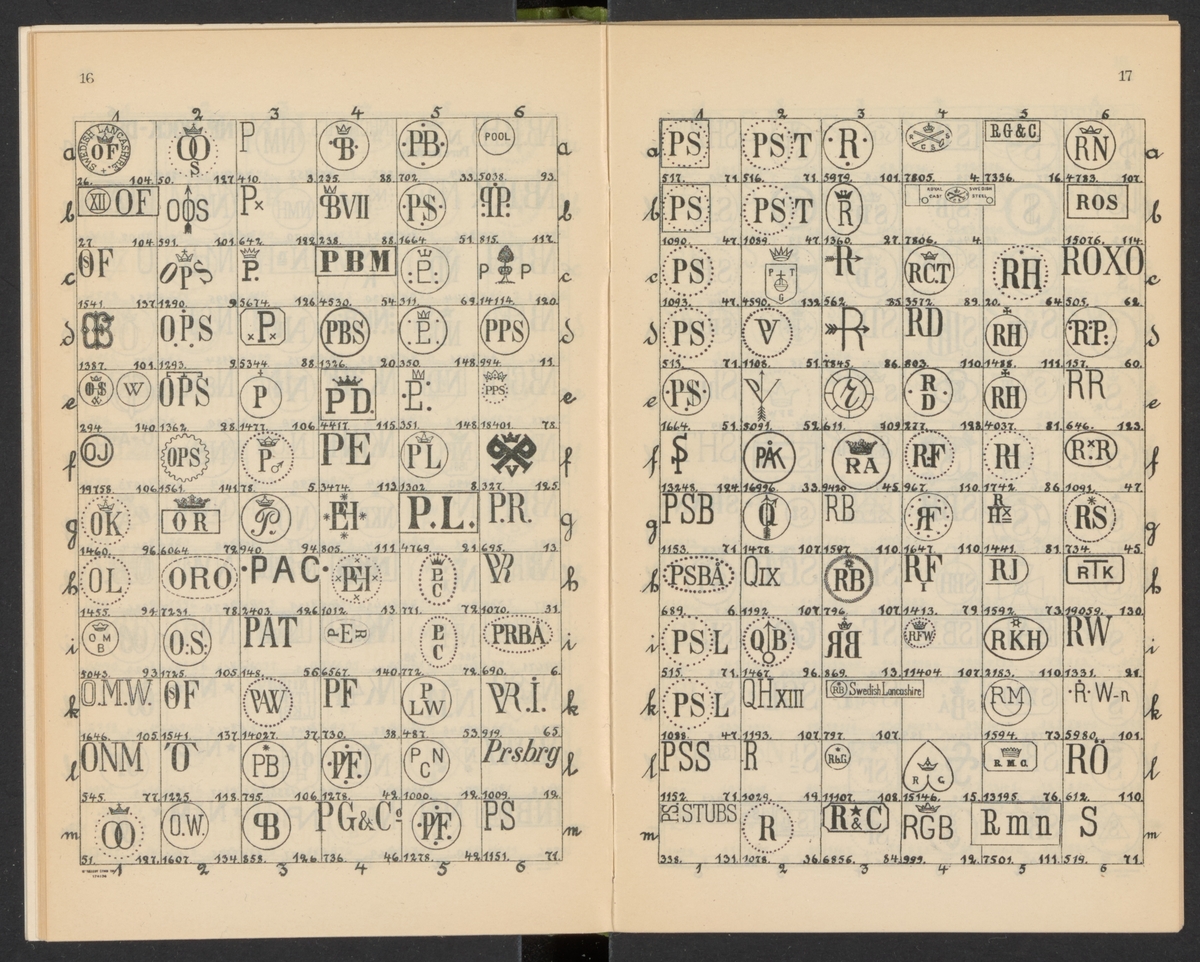 16
1 2 3 4 5 6
a
SWEDISH LANCASHIRE OF OO S P B PB POOL
a
26. 104. 50. 127. 410. 3. 235. 88. 702. 33. 5038. 93.
b
XII OF OOS Px BVII PS P.
b
27. 104. 591. 101. 642. 122. 238. 88. 1664. 51. 815. 117.
c
OF OPS P. PBM P. P P
c
1541. 137. 1290. 9. 5674. 126. 4530. 54. 311. 69. 14114. 120.
d
OPS P. PBS P. PPS
d
1387. 101. 1293. 9. 5344. 88. 1326. 20. 350. 148. 994. 11.
e
OS W OPS P PD. P. PPS
e
294. 140. 1362. 98. 1477. 106. 4417. 115. 351. 148. 18401. 78.
f
OJ OPS P PE PL
f
19758. 106. 1561. 141. 78. 5. 3474. 113. 1302. 8. 327. 125.
g
OK OR P. EH P.L. P.R.
g
1460. 96. 6064. 79. 940. 94. 805. 111. 4769. 21. 695. 13.
h
OL ORO ·PAC· EH P C PR
h
1455. 94. 7231. 78. 2403. 126. 1012. 13. 771. 79. 1070. 31.
i
O M B O.S. PAT PER P C PRBÅ
i
5043. 93. 1725. 105. 148. 56. 6567. 140. 772. 79. 690. 6.
k
O.M.W. OF PAW PF P LW PR.I.
k
1646. 105. 1541. 137. 14027. 37. 730. 38. 487. 53. 919. 65.
l
ONM O PB PF. PCN Prsbrg
l
545. 77. 1225. 118. 795. 106. 1278. 42. 1000. 12. 1009. 12.
m
OO O.W. PB PG&Co PF. PS
m
51. 127. 1607. 134. 858. 126. 736. 46. 1278. 42. 1151. 71.
1 2 3 4 5 6
17
1 2 3 4 5 6
a
PS PST ·R· RG&C. RN
a
517. 71. 516. 71. 5979. 101. 7805. 4. 7336. 16. 4783. 107.
b
PS PST R ROYAL EAST SWEDISH STEEL ROS
b
1090. 47. 1089. 47. 1360. 27. 7806. 4. 15076. 114.
c
PS P T G R RCT RH ROXO
c
1093. 47. 4590. 132. 562. 85. 3572. 89. 20. 64. 505. 62.
d
PS V R RD RH RP.
d
513. 71. 1108. 51. 7845. 86. 803. 110. 1488. 111. 157. 60.
e
·PS· V R R D RH RR
e
1664. 51. 8091. 52. 611. 109. 277. 128. 4037. 81. 646. 123.
f
PÅK RA RF RI R×R
f
13248. 124. 16996. 33. 9420. 45. 967. 110. 1742. 86. 1091. 47.
g
PSB Q RB RF R H RS
g
1153. 71. 1478. 107. 1597. 110. 1647. 110. 1441. 81. 734. 45.
h
PSBÅ QIX RB RF I RJ RTK
h
689. 6. 1192. 107. 796. 107. 1413. 79. 1592. 73. 19059. 130.
i
PSL QB RFW RKH RW
i
515. 71. 1467. 96. 869. 13. 11404. 107. 2183. 110. 1331. 21.
k
PSL QHXIII RB Swedish Lancashire RM ·R·W-n
k
1088. 47. 1193. 107. 797. 107. 1594. 73. 5980. 101.
l
PSS R R.b.G. R G R.M.O. RÖ
l
1152. 71. 1029. 19. 11107. 108. 15146. 15. 13195. 76. 612. 110.
m
STUBS R R&C RGB Rmn S
m
338. 131. 1078. 36. 6856. 84. 999. 12. 7501. 111. 519. 71.
1 2 3 4 5 6